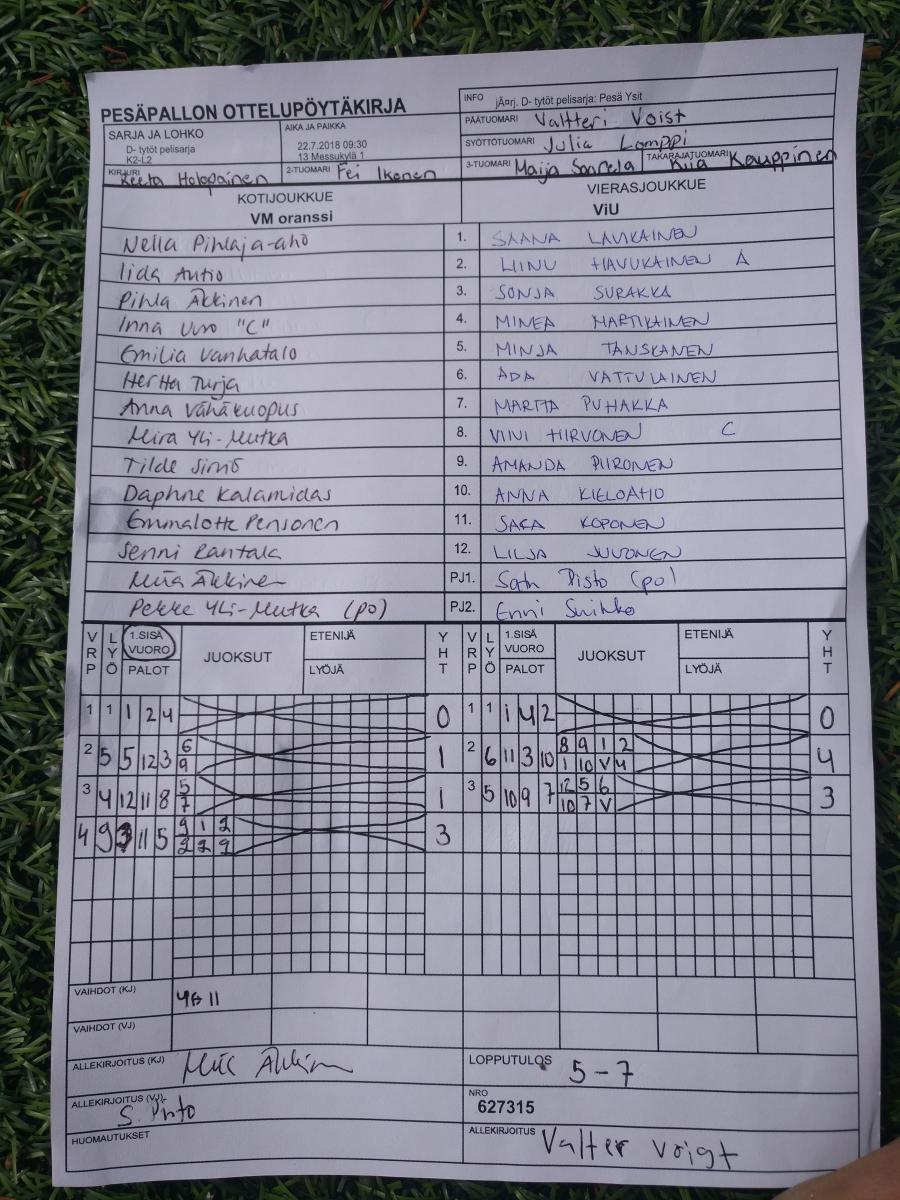 PESÄPALLON OTTELUPÖYTÄKIRJA
INFO jÃ¤rj. D- tytöt pelisarja: Pesä Ysit
SARJA JA LOHKO
D- tytöt pelisarja
K2-L2
AIKA JA PAIKKA
22.7.2018 09:30
13 Messukylä 1
PÄÄTUOMARI Valtteri Voist
SYÖTTÖTUOMARI Julia Lamppi
KIRJURI Reeta Holopainen 2-TUOMARI Fei Ikonen 3-TUOMARI Maija Saarela TAKARAJATUOMARI Kiia Kauppinen
KOTIJOUKKUE VIERASJOUKKUE
VM oranssi ViU
Nella Pihlaja-aho 1. SAANA LAVIKAINEN
Iida Autio 2. LIINU HAVUKAINEN A
Pihla Äkkinen 3. SONJA SURAKKA
Inna Uro "C" 4. MINEA MARTIKAINEN
Emilia Vanhatalo 5. MINJA TANSKANEN
Hertta Turja 6. ADA VATTULAINEN
Anna Vähäkuopus 7. MARTTA PUHAKKA
Mira Yli-Mutka 8. VINI HIRVONEN C
Tilde Simiö 9. AMANDA PIIRONEN
Daphne Kalamidas 10. ANNA KIELOAHO
Emmalotte Pensonen 11. SAGA KOPONEN
Senni Rantala 12. LILJA JUVONEN
Miia Äkkinen PJ1. Satu Pisto (po)
Pekka Yli-Mutka (po) PJ2. Enni Suihko
VRP LYÖ 1.SISÄ VUORO PALOT JUOKSUT ETENIJÄ LYÖJÄ YHT VRP LYÖ 1.SISÄ VUORO PALOT JUOKSUT ETENIJÄ LYÖJÄ YHT
1 1 1 2 4 0 1 1 1 4 2 0
2 5 5 12 3 6 1 2 6 11 3 10 8 9 1 2 4
9 1 10 V 4
3 4 12 11 8 5 1 3 5 10 9 7 12 5 6 3
7 10 7 V
4 9 3 11 5 9 1 2 3
2 2 9
VAIHDOT (KJ) 11
VAIHDOT (VJ)
ALLEKIRJOITUS (KJ) Miia Äkkinen LOPPUTULOS 5-7
ALLEKIRJOITUS (VJ) S. Pisto NRO 627315
HUOMAUTUKSET ALLEKIRJOITUS Valter Voigt